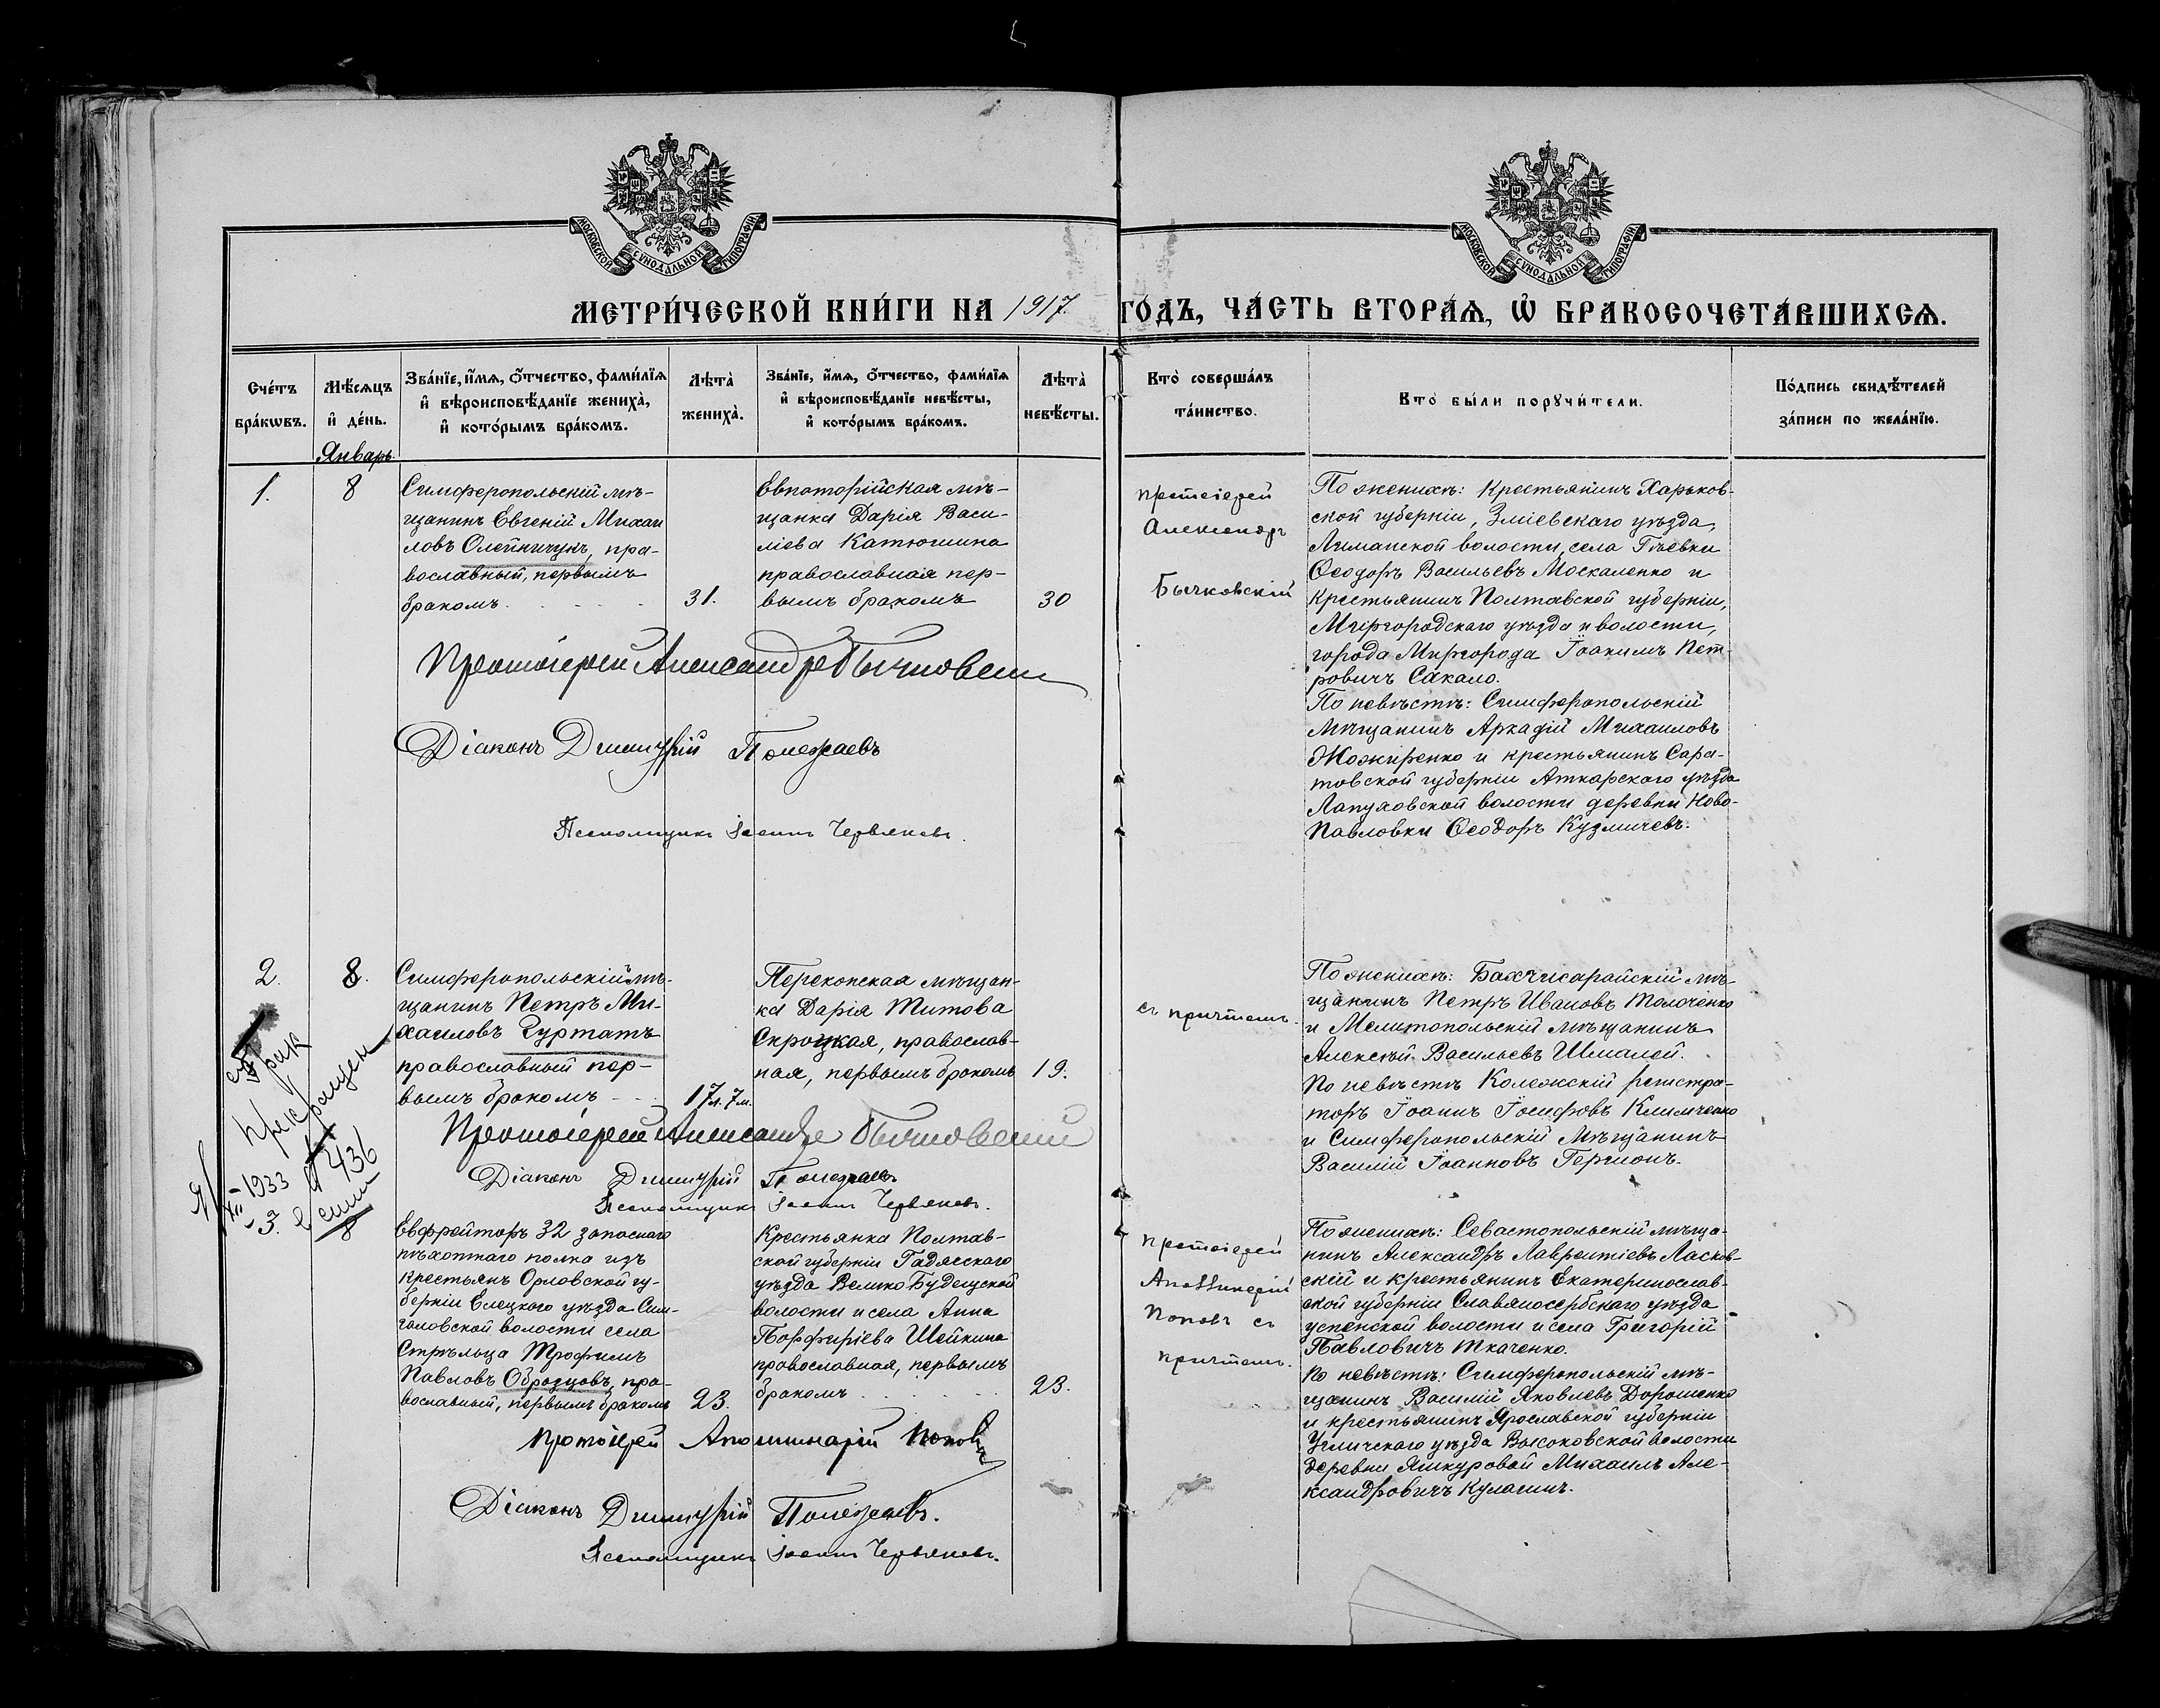 МОСКОВСКОЙ СѴНОДАЛЬНОЙ ТИПОГРАФІИ
МОСКОВСКОЙ СѴНОДАЛЬНОЙ ТИПОГРАФІИ
МЕТРИ́ЧЕСКОЙ КНИ́ГИ НА 1917. ГО́ДЪ, ЧА́СТЬ ВТОРА́Ѧ, Ѡ҆ БРАКОСОЧЕТА́ВШИХСѦ.
Сче́тъ бра́кωвъ.
Мѣ́сѧцъ и҆ де́нь.
Зва́нїе, и҆́мѧ, о҆́тчество, фами́лїѧ и҆ вѣроисповѣ́данїе жениха̀, и҆ кото́рымъ бра́комъ.
Лѣта̀ жениха̀.
Зва́нїе, и҆́мѧ, о҆́тчество, фами́лїѧ и҆ вѣроисповѣ́данїе невѣ́сты, и҆ кото́рымъ бра́комъ.
Лѣта̀ невѣ́сты.
Кто̀ соверша́лъ та́инство.
Кто̀ бы́ли порꙋчи́тели.
По́дпись свидѣ́телей за́писи по жела́нїю.
Январь.
1.
8
Симферопольскій мѣ-
щанинъ Евгеній Михаи
ловъ Олейничукъ, пра-
вославный, первымъ
бракомъ.
31.
Евпаторійская мѣ-
щанка Дарія Васи-
ліева Катюшина
православная пер-
вымъ бракомъ
30
протоіерей
Александръ
Бычковскій
По женихѣ: Крестьянинъ Харьков-
ской губерніи, Зміевскаго уѣзда,
Лиманской волости, села Гѣевки
Ѳеодоръ Васильевъ Москаленко и
крестьянинъ Полтавской губерніи,
Миргородскаго уѣзда и волости,
города Миргорода Іоакимъ Пет-
ровичъ Сакало.
По невѣстѣ: Симферопольскій
мѣщанинъ Аркадій Михаиловъ
Можиренко и крестьянинъ Сара-
товской губерніи Аткарскаго уѣзда
Лапуховской волости деревни Ново-
Павловки Ѳеодоръ Кузмичевъ.
Протоіерей Александръ Бычковскій
Діаконъ Димитрій Полежаевъ
Псаломщикъ Іоаннъ Червяковъ.
2.
8.
Симферопольскій мѣ-
щанинъ Петръ Ми-
хаиловъ Гуртатъ
православный пер-
вымъ бракомъ
17 л. 7 м.
Перекопская мѣщан-
ка Дарія Титова
Скроцкая, православ-
ная, первымъ бракомъ
19.
съ причтомъ.
По женихѣ: Бахчисарайскій мѣ-
щанинъ Петръ Ивановъ Толоченко
и Мелитопольскій мѣщанинъ
Алексѣй Васильевъ Шмалей.
По невѣстѣ Колежскій регистра-
торъ Іоаннъ Іосифовъ Климченко
и Симферопольскій мѣщанинъ
Василій Іоанновъ Гергионъ.
брак
прекращен
1933
436
Протоіерей Александръ Бычковскій
Діаконъ Димитрій Полежаевъ
Псаломщикъ Іоаннъ Червяковъ.
Ефрейторъ 32 запаснаго
пѣхотнаго полка изъ
крестьянъ Орловской гу-
берніи Елецкаго уѣзда
волости села
Стрѣльца Трофимъ
Павловъ Образцовъ, пра-
вославный, первымъ бракомъ
23.
Крестьянка Полтав-
ской губерніи Гадячскаго
уѣзда Велико Будещской
волости и села Анна
Порфиріева Шейкина
православная, первымъ
бракомъ
23.
Протоіерей
Аполлинарій
Поповъ съ
причтомъ.
По женихѣ: Севастопольскій мѣща-
нинъ Александръ Лаврентіевъ Ласков-
скій и крестьянинъ Екатеринослав-
ской губерніи Славяносербскаго уѣзда
успенской волости и села Григорій
Павловичъ Ткаченко.
По невѣстѣ: Симферопольскій мѣ-
щанинъ Василій Яковлевъ Дорошенко
и крестьянинъ Ярославской губерніи
Угличскаго уѣзда Высоковской волости
деревни Яшкуровой Михаилъ Але-
ксандровичъ Кулагинъ.
Протоіерей Аполлинарій Поповъ
Діаконъ Димитрій Полежаевъ.
Псаломщикъ Іоаннъ Червяковъ.